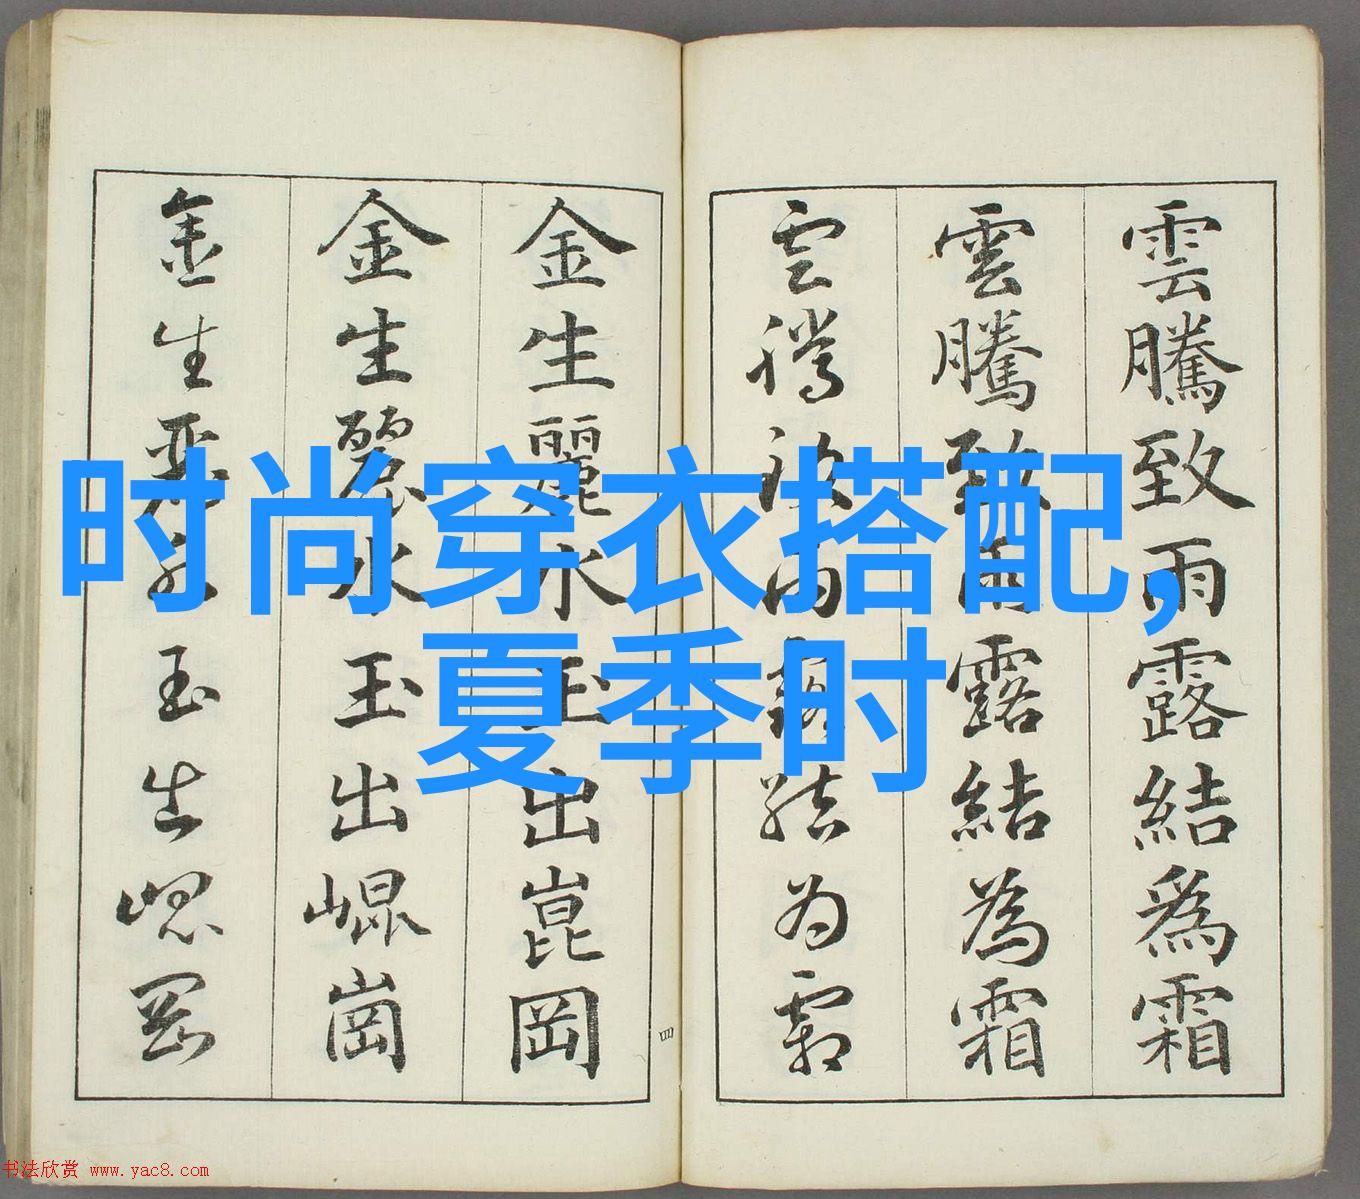 雲騰致雨露結為霜
雲騰致雨露結為霜
雲騰致雨露結为霜
金生麗水玉出崑岡
金生麗水玉出崐崗
金生麗水玉出崐岡
四
时尚穿衣搭配,
夏季时
书法欣赏 www.yac8.com